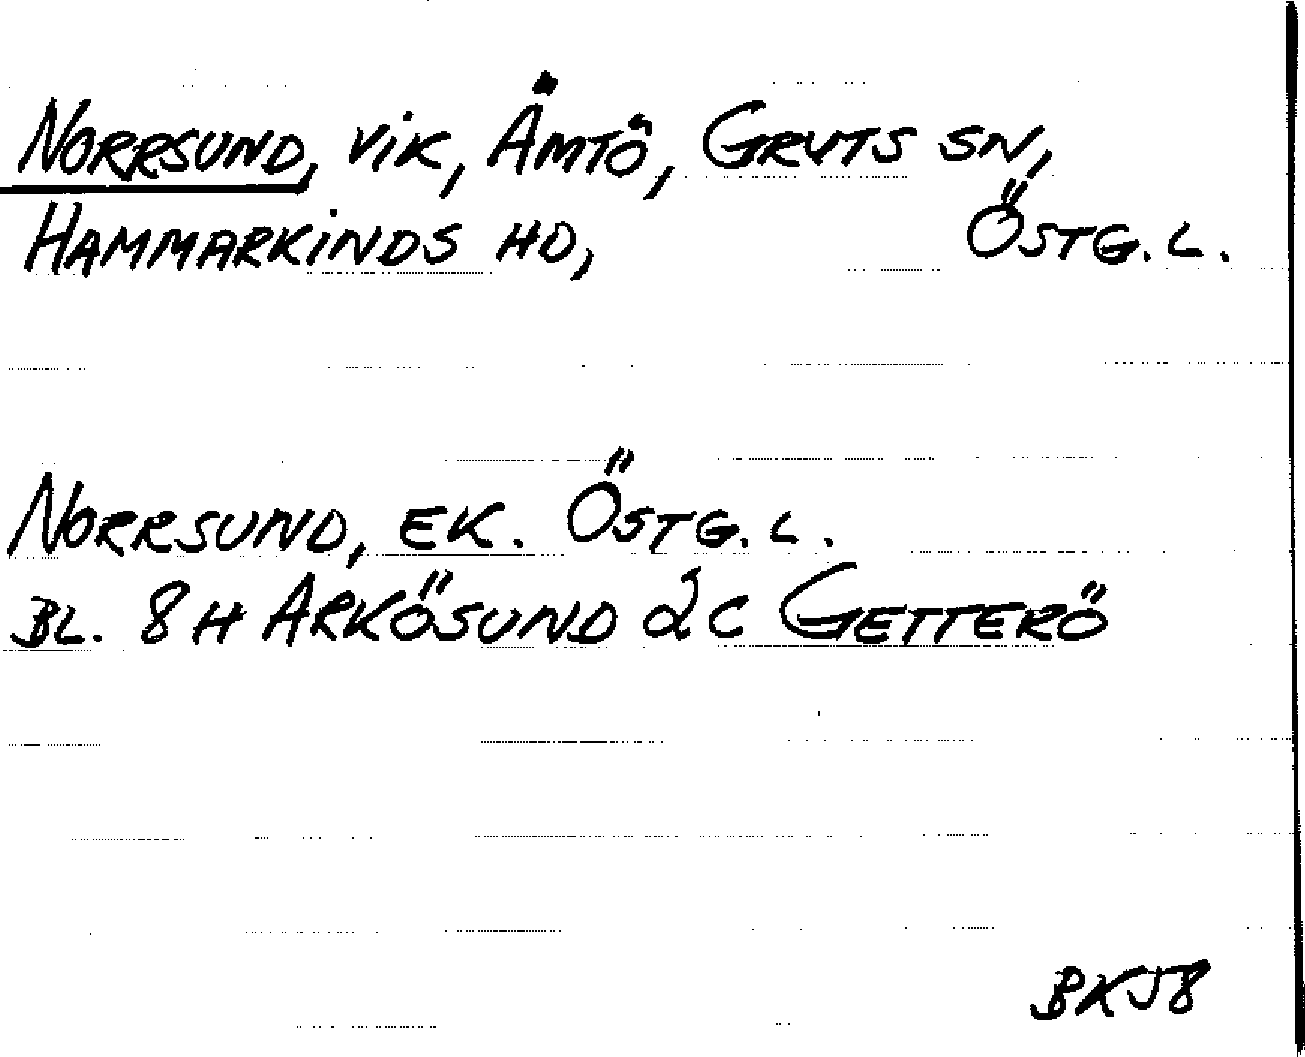 NORRSUND, VIK, ÄMTÖ, GRYTS SN,
HAMMARKINDS HD, ÖSTG. L.
NORRSUND, EK. ÖSTG. L.
BL. 8H ARKÖSUND 2C GETTERÖ
BKJ8